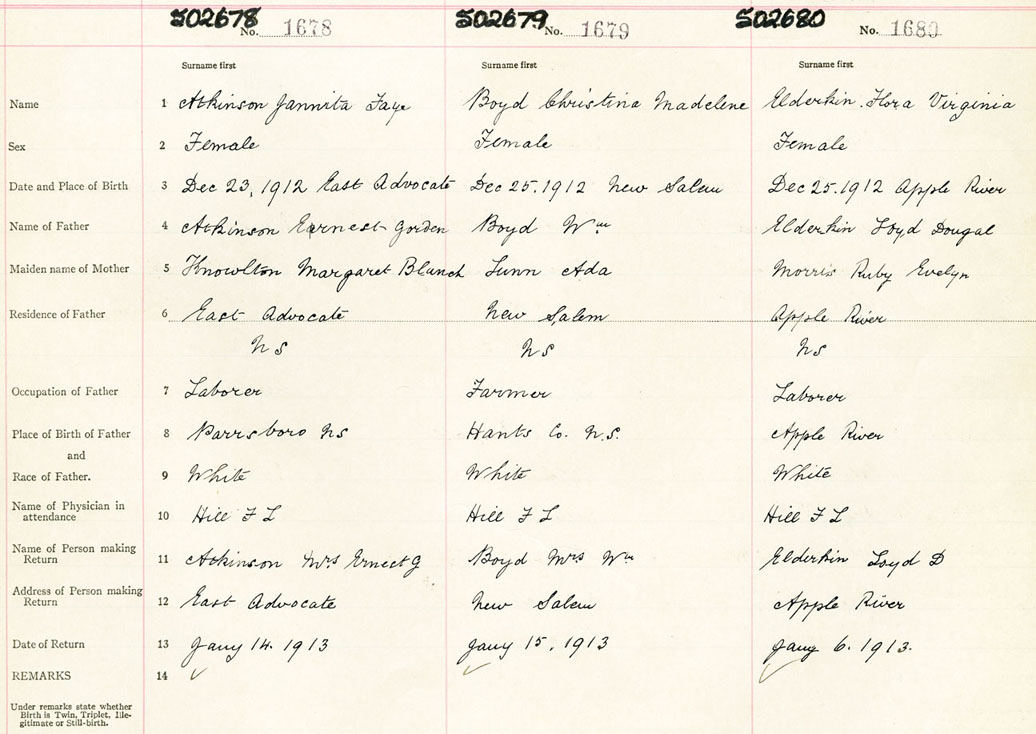 502678 502679 502680
No. 1678 No. 1679 No. 1680
Surname first Surname first Surname first
Name 1 Atkinson Jannita Faye Boyd Christina Madelene Elderkin Flora Virginia
Sex 2 Female Female Female
Date and Place of Birth 3 Dec 23, 1912 East Advocate Dec 25. 1912 New Salem Dec 25. 1912 Apple River
Name of Father 4 Atkinson Earnest Gorden Boyd Wm Elderkin Loyd Dougal
Maiden name of Mother 5 Knowlton Margaret Blanch Lunn Ada Morris Ruby Evelyn
Residence of Father 6 East Advocate New Salem Apple River
NS NS NS
Occupation of Father 7 Laborer Farmer Laborer
Place of Birth of Father 8 Parrsboro NS Hants Co. N.S. Apple River
and
Race of Father. 9 White White White
Name of Physician in
attendance 10 Hill F L Hill F L Hill F L
Name of Person making
Return 11 Atkinson Mrs Ernest G Boyd Mrs Wm Elderkin Loyd D
Address of Person making
Return 12 East Advocate New Salem Apple River
Date of Return 13 Jany 14. 1913 Jany 15, 1913 Jany 6. 1913.
REMARKS 14
Under remarks state whether
Birth is Twin, Triplet, Ille-
gitimate or Still-birth.